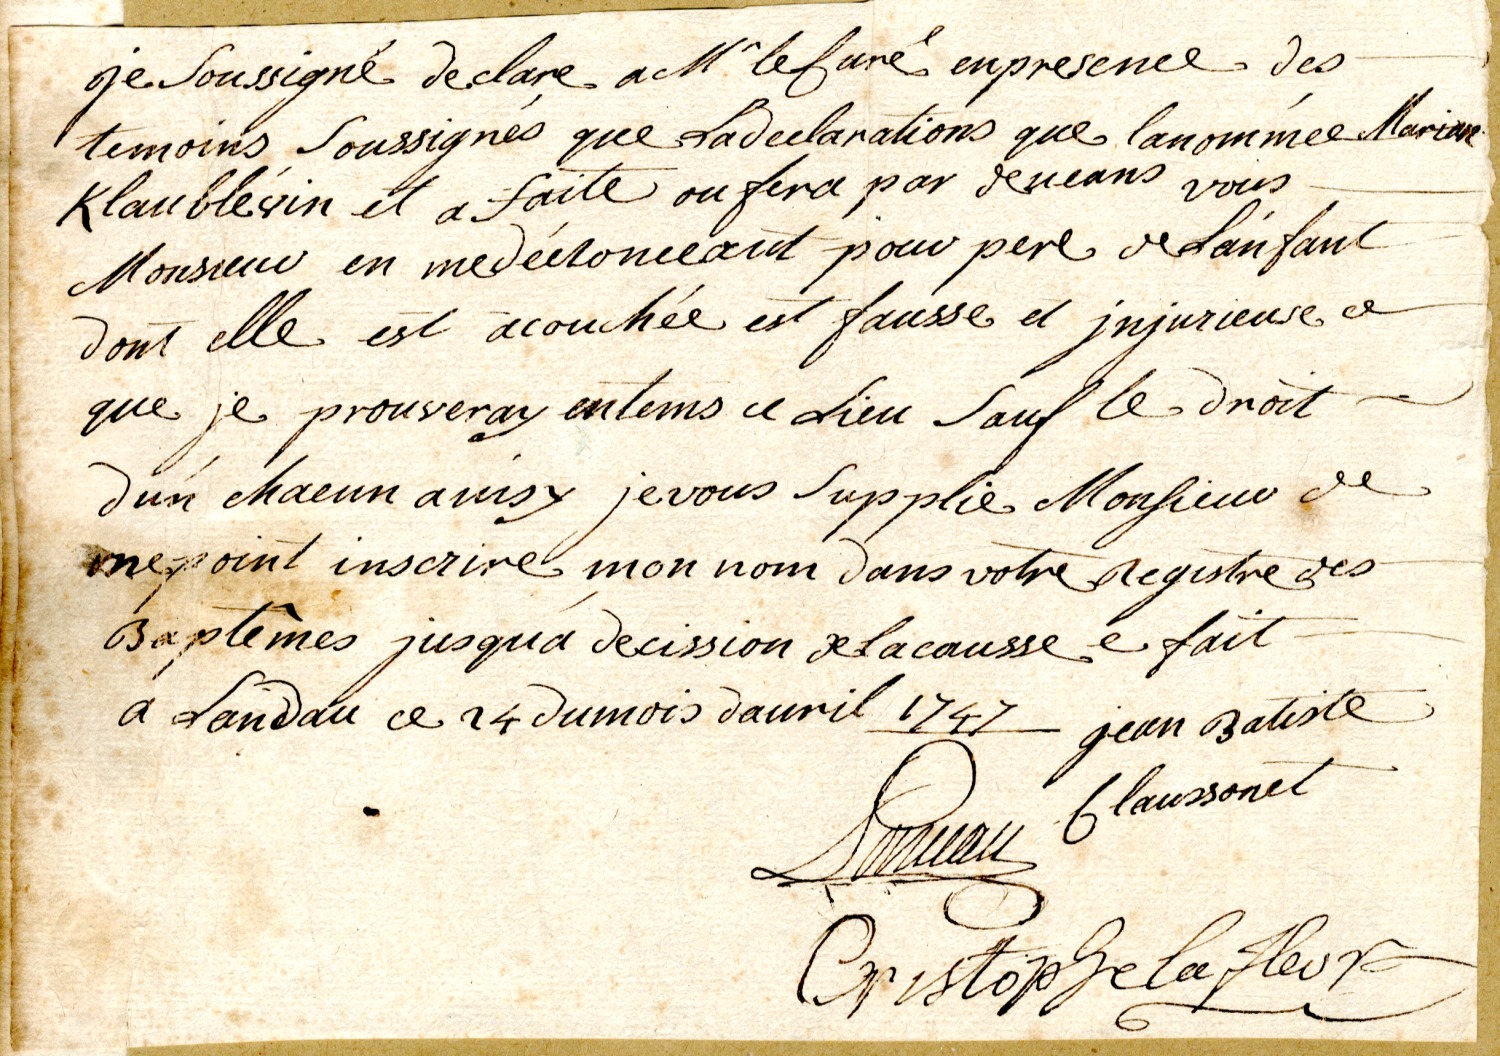 je soussigné declare a Mr le Curé en presence des
temoins soussignés que La declarations que la nommée Marian
Klaublévin et a faite ou fera par deveans vous
Monsieur en me déctonceant pour pere de L'anfant
dont elle est acouchée est fausse et jnjurieuse ce
que je prouveray en tems et Lieu sauf le droit
d'un chacun a vis y je vous supplie Monsieur de
ne point inscrire mon nom dans votre Registre des
Baptêmes jusqu'a decission de la causse e fait
a Landau ce 24 du mois d'avril 1747 jean Batiste
Claussonet
Cristophe la fleur